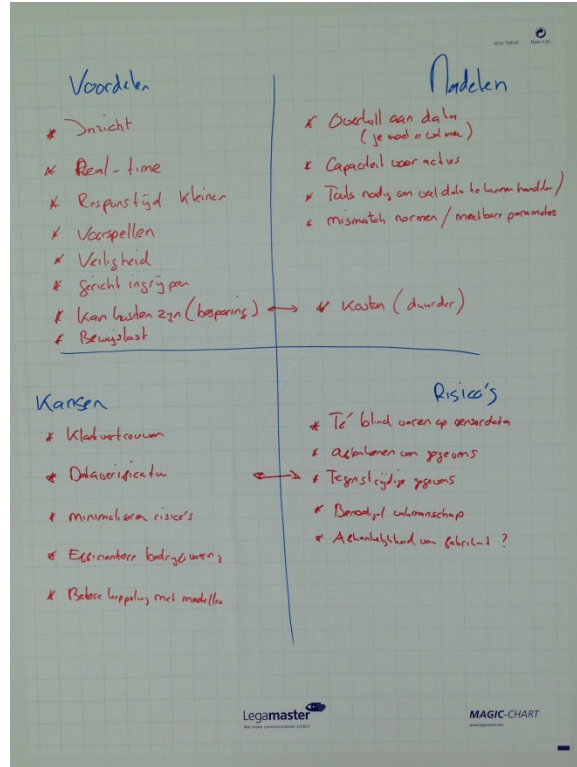 Voordelen
* Inzicht
* Real-time
* Responstijd kleiner
* Voorspellen
* Veiligheid
* gericht ingrijpen
* Kan kosten zijn (besparing)
* Bewijslast
Nadelen
* Overkill aan data
* Capaciteit voor acties
* Tools nodig om veel data te kunnen handelen
* mismatch normen / meetbare parameters
* Kosten (duurder)
Kansen
* Klantvertrouwen
* Dataverificatie
* minimaliseren risico's
* Efficientere bedrijfsvoering
* Betere koppeling met modellen
Risico's
* Té blind varen op sensordata
* van gegevens
* Tegenstrijdige gegevens
* Benodigd vakmanschap
* Afhankelijkheid van fabrikant ?
Legamaster
We make communication visible
MAGIC-CHART
www.legamaster.com